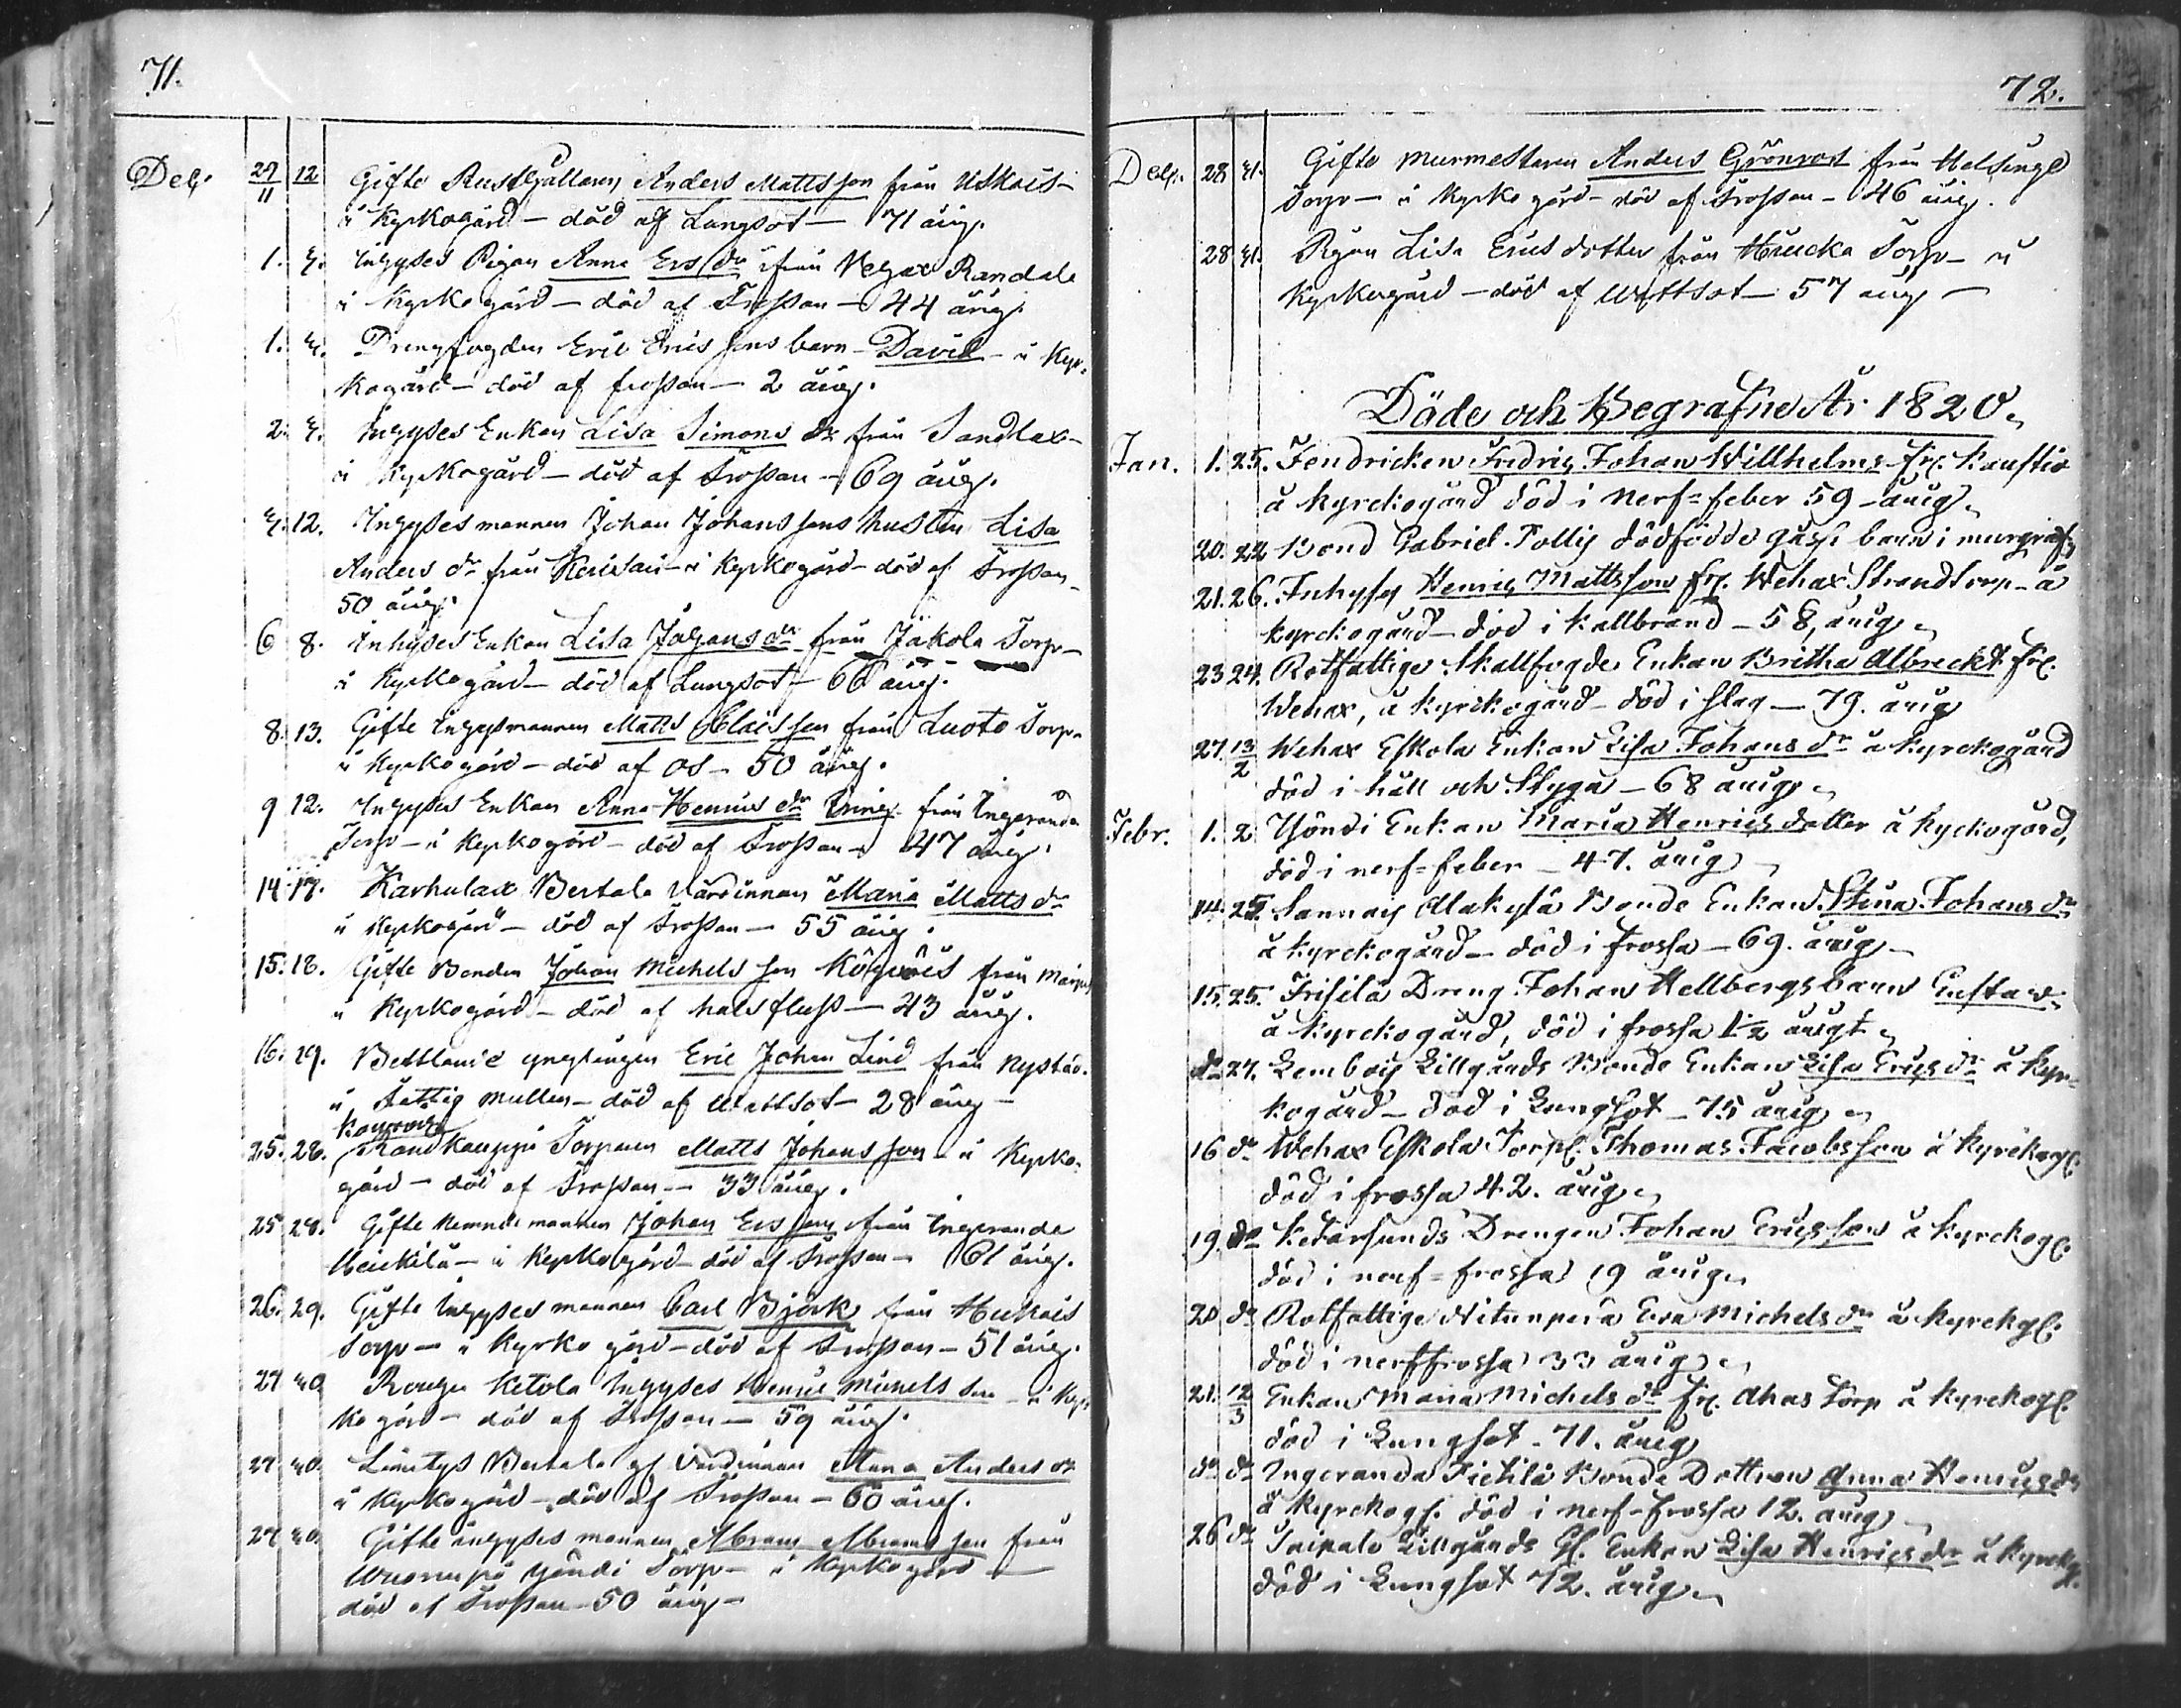 71.
Decbr 29/11 12 Gifte Rusthållaren Anders Mattsson från Uskais-
å Kyrkogård - död af Lungsot - 71 årig.
1. 4. Inhyses Pigan Anna Ers dr från Vehax Randala
å Kyrkogård - död af Frossan - 44 årig.
1. 4. Drengfogden Eric Erics sons barn David - å Kyr-
kogård - död af frossan - 2 årig.
2. 4. Inhyses Enkan Lisa Simons dr från Sandlax-
å Kyrkogård - död af Frossan - 69 årig.
4. 12. Inhyses mannen Johan Johanssons hustru Lisa
Anders dr från - å Kyrkogård - död af Frossan-
50 årig.
6 8. Inhyses Enkan Lisa Johans dr från Jäkola Torp-
å Kyrkogård - död af Lungsot - 66 årig.
8. 13. Gifte Inhyses mannen Matts Clas son från Luoto Torp-
å Kyrkogård - död af os - 50 årig.
9 12. Inhyses Enkan Anna Henrics dr från Ingeranda
Torp - å Kyrkogård - död af Frossan - 47 årig.
14. 17. Karhulax Bertala Värdinnan Maria Matts dr
å Kyrkogård - död af Frossan - 55 årig.
15. 18. Gifte Bonden Johan Michels son från
å Kyrkogård - död af halsfluss - 43 årig.
16. 29. ynglingen Eric Johan Lind från Nystad.
å Fattig mullen - död af Wattsot - 28 årig -
25. 28. Torparen Matts Johans son - å Kyrko-
gård - död af Frossan - 33 årig.
25 28. Gifte mannen Johan Ers son från Ingeranda
Heickilä - å Kyrkogård - död af Frossan - 61 årig.
26. 29. Gifte Inhyses mannen Carl Björk från
Torp - å Kyrkogård - död af Frossan - 51 årig.
27 Ketola Inhyses Henric Michels son - å Kyr
kogård - död af Frossan - 59 årig.
27 Bertala gl Värdinnan Anna Anders dr
å Kyrkogård - död af Frossan - 60 årig.
27 Gifte inhyses mannen Abram Abrams son från
Yöndi Torp - å Kyrkogård -
död af Frossan - 50 årig -
72.
Decbr. 28 31. Gifte Murmestaren Anders Grönroos från Helsinge
Torp - å Kyrkogård - död af Frossan - 46 årig.
28 31. Pigan Lisa Erics dotter från Torp - å
Kyrkogård - död af Wattsot - 57 årig -
Döde och Begrafne År 1820.
Jan. 1. 25. Fendricken Fredric Johan Willhelms fr.
å Kyrckogård död i Nerf-feber 59 årig.
20. 22 Bond Gabriel dödfödde gåsse barn i murgraf.
21. 26. Inhyses Henric Mattsson fr. Wehax Strandtorp - å
kyrckogård - död i kallbrand - 58 årig.
23 24. Rotfattige Skallfogde Enkan Britha Albreckt fr.
Wehax, å kyrckogård - död i slag - 79. årig
27. 13/2 Wehax Eskola Enkan Lisa Johans dr å kyrckogård
död i håll och Stygn - 68 årig.
Febr. 1. 2 Yöndi Enkan Maria Henrics dotter å kyckogård,
död i nerf-feber - 47. årig
14. 25. Sannais Alakylä Bonde Enkan Stina Johans dr
å kyrckogård - död i frossa - 69. årig -
15. 25. Frisilä Dreng Johan Hellbergs barn Gustaw.
å kyrckogård, död i frossa 1½ årigt.
do 27. Lembois Lillgårds Bonde Enkan Lisa Erics dr å kyr-
kogård - död i Lungsot - 75 årig
16 do Wehax Eskola Torp: Thomas Jacobsson å kyrckog:
död i frossa 42. årig
19. do Ketarsunds Drengen Johan Ericsson å kyrckog:
död i nerf-frossa 19 årig
20 do Rotfattige Eva Michels dr å kyrckg:
död i nerffrossa 33 årig
21. 12/3 Enkan Maria Michels dr fr. Ahas Torp å kyrckog:
död i Lungsot - 71. årig
do do Ingeranda Bonde Dottren Anna Henrics dr
å kyrckog: död i nerf-frossa 12. årig
26 do Taipale Lillgårds Gl. Enkan Lisa Henrics dr å kyrckg:
död i Lungsot 72. årig